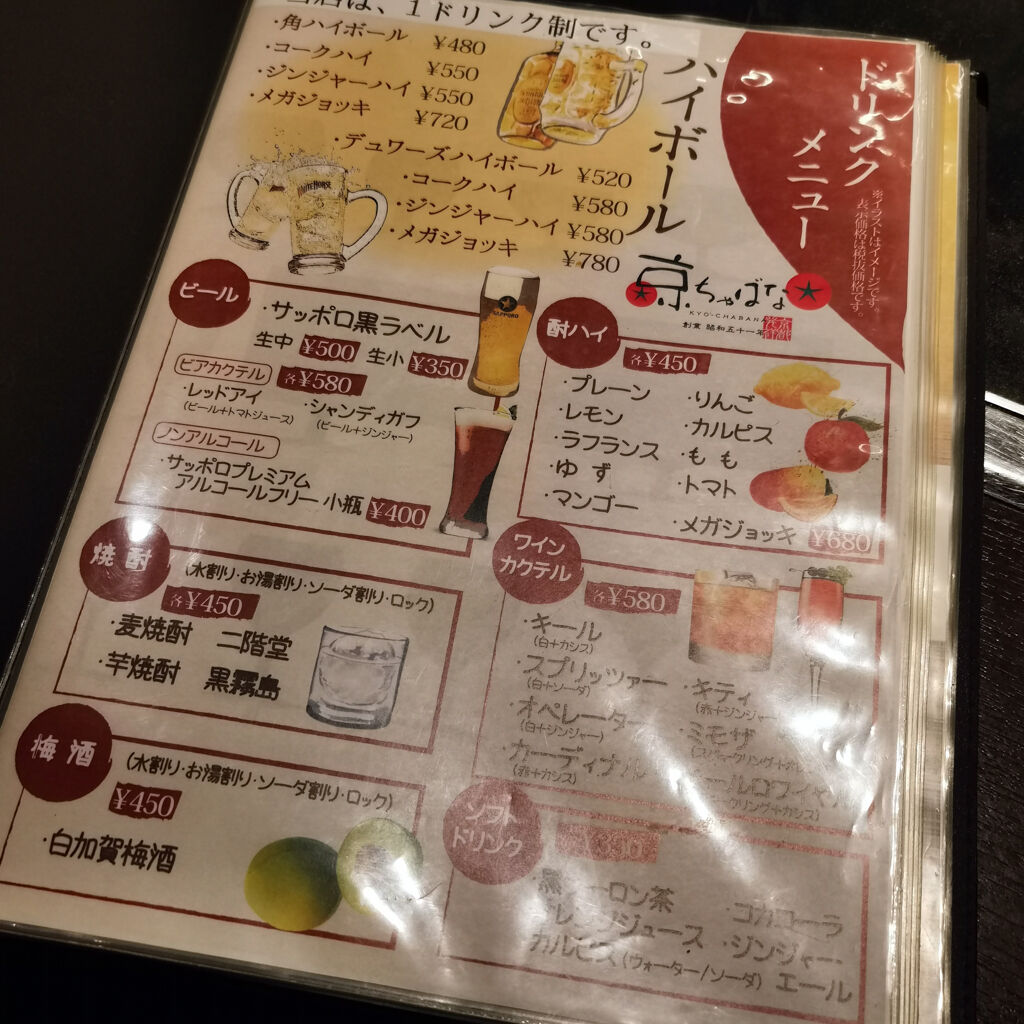 は、1ドリンク制です。
・角ハイボール ¥480
・コークハイ ¥550
・ジンジャーハイ ¥550
・メガジョッキ ¥720
・デュワーズハイボール ¥520
・コークハイ ¥580
・ジンジャーハイ ¥580
・メガジョッキ ¥780
ハイボール
ドリンク
メニュー
※イラストはイメージです。
表示価格は税抜価格です。
京ちゃばな
KYO-CHABANA
創業 昭和五十一年
ビール
・サッポロ黒ラベル
生中 ¥500 生小 ¥350
SAPPORO
ビアカクテル 各¥580
・レッドアイ
(ビール+トマトジュース)
・シャンディガフ
(ビール+ジンジャー)
ノンアルコール
・サッポロプレミアム
アルコールフリー 小瓶 ¥400
酎ハイ
各¥450
・プレーン
・レモン
・ラフランス
・ゆず
・マンゴー
・りんご
・カルピス
・もも
・トマト
・メガジョッキ ¥680
焼酎
(水割り・お湯割り・ソーダ割り・ロック)
各¥450
・麦焼酎 二階堂
・芋焼酎 黒霧島
梅酒
(水割り・お湯割り・ソーダ割り・ロック)
¥450
・白加賀梅酒
ワイン
カクテル
各¥580
・キール
(白+カシス)
・スプリッツァー
(白+ソーダ)
・オペレーター
(白+ジンジャー)
・カーディナル
(赤+カシス)
・キティ
(赤+ジンジャー
・ミモザ
ールロワイヤル
ークリング+カシス)
ソフト
ドリンク
・黒ウーロン茶
オレンジジュース
カルピス(ウォーター/ソーダ)
・コカコーラ
・ジンジャー
エール